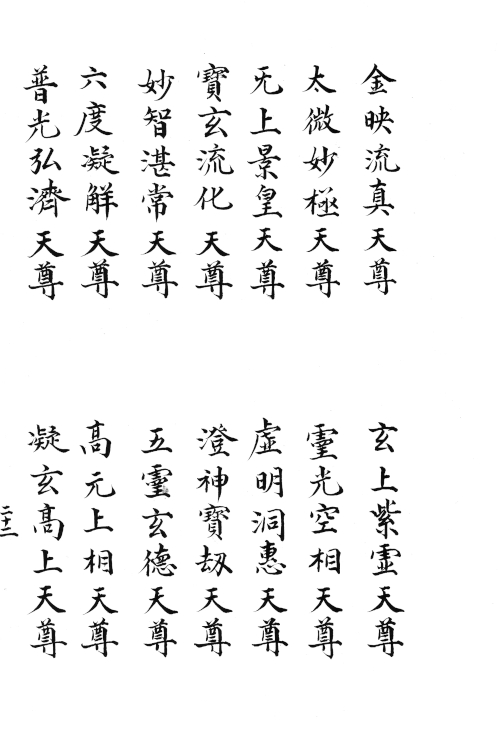 金映流真天尊
玄上紫虛天尊
太微妙極天尊
靈光空相天尊
无上景皇天尊
虛明洞惠天尊
寶玄流化天尊
澄神寶劫天尊
妙智湛常天尊
五靈玄德天尊
六度凝解天尊
高元上相天尊
普光弘濟天尊
凝玄高上天尊
二十三